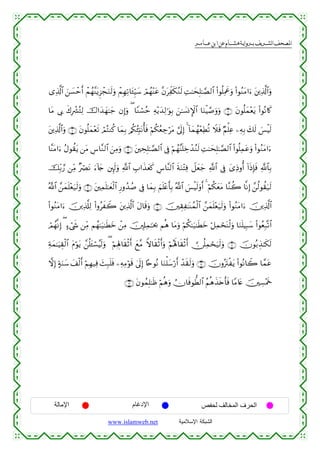 المصحف الشريف برواية هشام عن ابن عامر
وَٱلَّذِينَ ءَامَنُوا۟ وَعَمِلُوا۟ ٱلصَّٰلِحَٰتِ لَنُكَفِّرَنَّ عَنْهُمْ سَيِّـَٔاتِهِمْ وَلَنَجْزِيَنَّهُمْ أَحْسَنَ ٱلَّذِى
كَانُوا۟ يَعْمَلُونَ وَوَصَّيْنَا ٱلْإِنسَٰنَ بِوَٰلِدَيْهِ حُسْنًا وَإِن جَٰهَدَاكَ لِتُشْرِكَ بِى مَا
لَيْسَ لَكَ بِهِۦ عِلْمٌ فَلَا تُطِعْهُمَآ إِلَىَّ مَرْجِعُكُمْ فَأُنَبِّئُكُم بِمَا كُنتُمْ تَعْمَلُونَ وَٱلَّذِينَ
ءَامَنُوا۟ وَعَمِلُوا۟ ٱلصَّٰلِحَٰتِ لَنُدْخِلَنَّهُمْ فِى ٱلصَّٰلِحِينَ وَمِنَ ٱلنَّاسِ مَن يَقُولُ ءَامَنَّا
بِٱللَّهِ فَإِذَآ أُوذِىَ فِى ٱللَّهِ جَعَلَ فِتْنَةَ ٱلنَّاسِ كَعَذَابِ ٱللَّهِ وَلَئِن جَآءَ نَصْرٌ مِّن رَّبِّكَ
لَيَقُولُنَّ إِنَّا كُنَّا مَعَكُمْ أَوَلَيْسَ ٱللَّهُ بِأَعْلَمَ بِمَا فِى صُدُورِ ٱلْعَٰلَمِينَ وَلَيَعْلَمَنَّ ٱللَّهُ
ٱلَّذِينَ ءَامَنُوا۟ وَلَيَعْلَمَنَّ ٱلْمُنَٰفِقِينَ وَقَالَ ٱلَّذِينَ كَفَرُوا۟ لِلَّذِينَ ءَامَنُوا۟
ٱتَّبِعُوا۟ سَبِيلَنَا وَلْنَحْمِلْ خَطَٰيَٰكُمْ وَمَا هُم بِحَٰمِلِينَ مِنْ خَطَٰيَٰهُم مِّن شَىْءٍ إِنَّهُمْ
لَكَٰذِبُونَ وَلَيَحْمِلُنَّ أَثْقَالَهُمْ وَأَثْقَالًا مَّعَ أَثْقَالِهِمْ وَلَيُسْـَٔلُنَّ يَوْمَ ٱلْقِيَٰمَةِ
عَمَّا كَانُوا۟ يَفْتَرُونَ وَلَقَدْ أَرْسَلْنَا نُوحًا إِلَىٰ قَوْمِهِۦ فَلَبِثَ فِيهِمْ أَلْفَ سَنَةٍ إِلَّا
خَمْسِينَ عَامًا فَأَخَذَهُمُ ٱلطُّوفَانُ وَهُمْ ظَٰلِمُونَ
الحرف المخالف لحفص الإدغام الإمالة
الشبكة الإسلامية www.islamweb.net